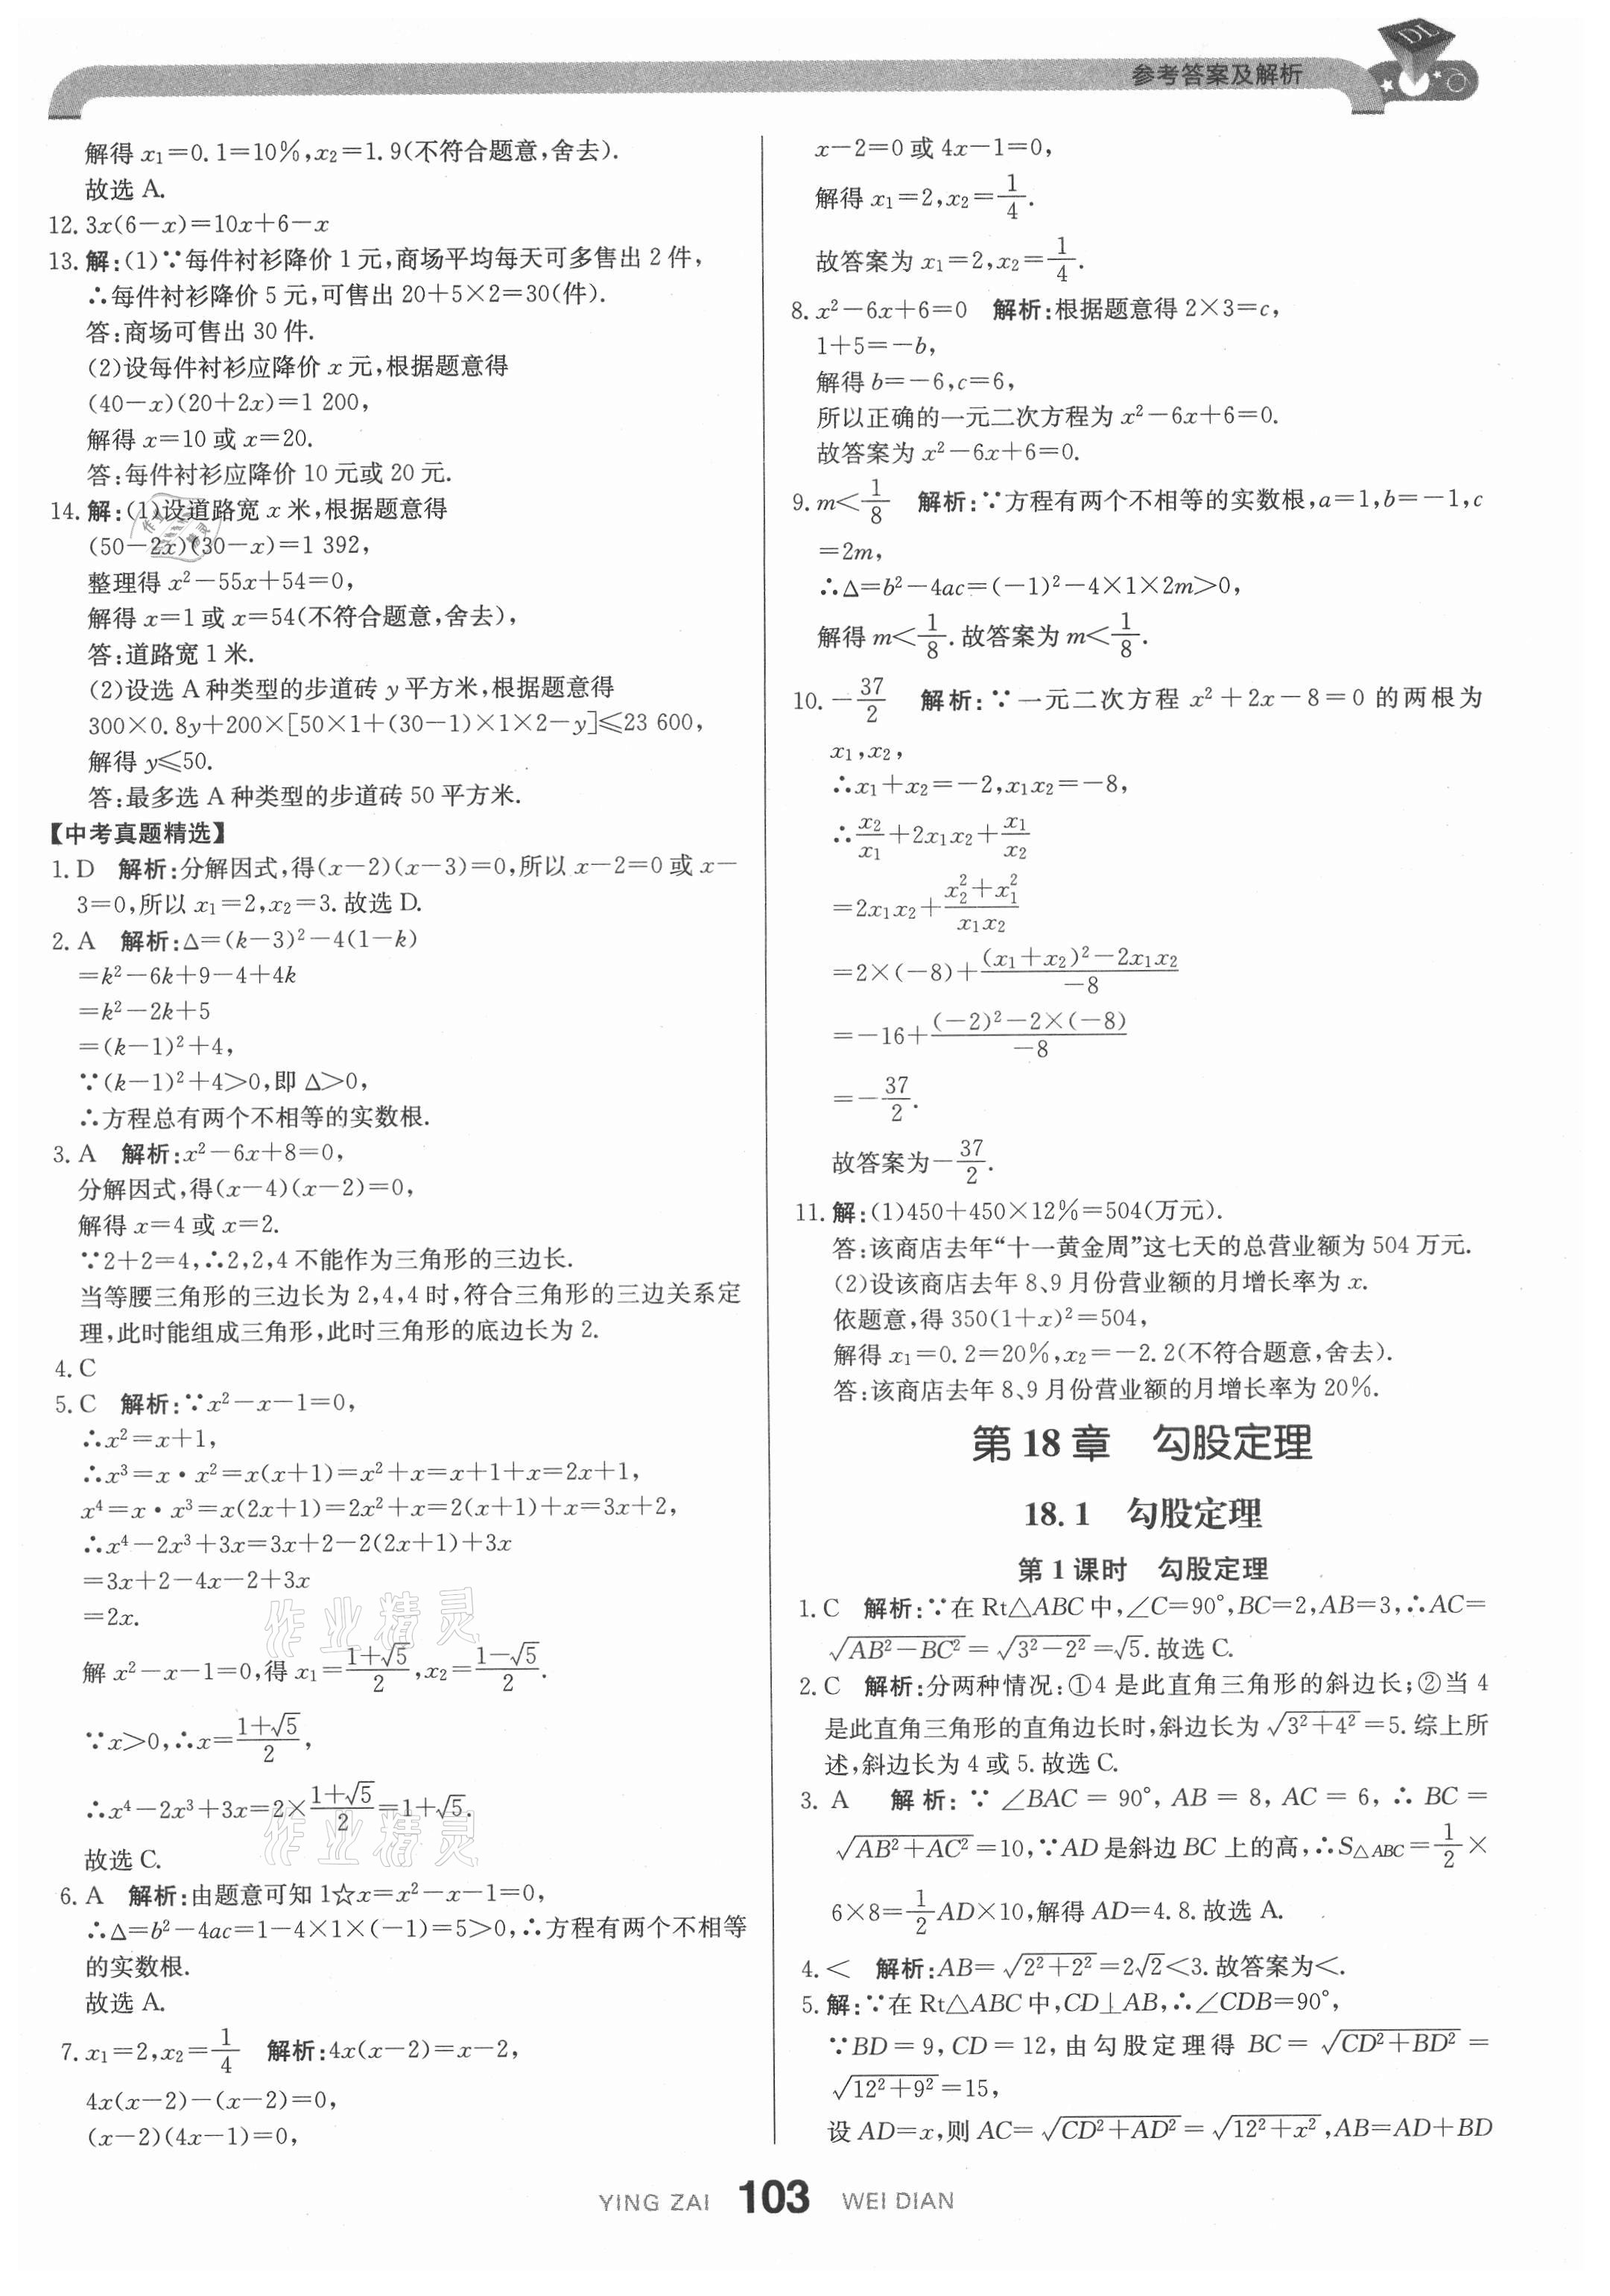 参考答案及解析
DL
解得 x₁=0.1=10%,x₂=1.9(不符合题意,舍去).
故选 A.
12. 3x(6-x)=10x+6-x
13. 解:(1)∵每件衬衫降价 1 元,商场平均每天可多售出 2 件,
∴每件衬衫降价 5 元,可售出 20+5×2=30(件).
答:商场可售出 30 件.
(2)设每件衬衫应降价 x 元,根据题意得
(40-x)(20+2x)=1 200,
解得 x=10 或 x=20.
答:每件衬衫应降价 10 元或 20 元.
14. 解:(1)设道路宽 x 米,根据题意得
(50-2x)(30-x)=1 392,
整理得 x²-55x+54=0,
解得 x=1 或 x=54(不符合题意,舍去),
答:道路宽 1 米.
(2)设选 A 种类型的步道砖 y 平方米,根据题意得
300×0.8y+200×[50×1+(30-1)×1×2-y]≤23 600,
解得 y≤50.
答:最多选 A 种类型的步道砖 50 平方米.
【中考真题精选】
1. D 解析:分解因式,得(x-2)(x-3)=0,所以 x-2=0 或 x-
3=0,所以 x₁=2,x₂=3.故选 D.
2. A 解析:Δ=(k-3)²-4(1-k)
=k²-6k+9-4+4k
=k²-2k+5
=(k-1)²+4,
∵(k-1)²+4>0,即 Δ>0,
∴方程总有两个不相等的实数根.
3. A 解析:x²-6x+8=0,
分解因式,得(x-4)(x-2)=0,
解得 x=4 或 x=2.
∵2+2=4,∴2,2,4 不能作为三角形的三边长.
当等腰三角形的三边长为 2,4,4 时,符合三角形的三边关系定
理,此时能组成三角形,此时三角形的底边长为 2.
4. C
5. C 解析:∵x²-x-1=0,
∴x²=x+1,
∴x³=x·x²=x(x+1)=x²+x=x+1+x=2x+1,
x⁴=x·x³=x(2x+1)=2x²+x=2(x+1)+x=3x+2,
∴x⁴-2x³+3x=3x+2-2(2x+1)+3x
=3x+2-4x-2+3x
=2x.
解 x²-x-1=0,得 x₁=(1+√5)/2,x₂=(1-√5)/2.
∵x>0,∴x=(1+√5)/2,
∴x⁴-2x³+3x=2×(1+√5)/2=1+√5.
故选 C.
6. A 解析:由题意可知 1☆x=x²-x-1=0,
∴Δ=b²-4ac=1-4×1×(-1)=5>0,∴方程有两个不相等
的实数根.
故选 A.
7. x₁=2,x₂=1/4 解析:4x(x-2)=x-2,
4x(x-2)-(x-2)=0,
(x-2)(4x-1)=0,
x-2=0 或 4x-1=0,
解得 x₁=2,x₂=1/4.
故答案为 x₁=2,x₂=1/4.
8. x²-6x+6=0 解析:根据题意得 2×3=c,
1+5=-b,
解得 b=-6,c=6,
所以正确的一元二次方程为 x²-6x+6=0.
故答案为 x²-6x+6=0.
9. m<1/8 解析:∵方程有两个不相等的实数根,a=1,b=-1,c
=2m,
∴Δ=b²-4ac=(-1)²-4×1×2m>0,
解得 m<1/8.故答案为 m<1/8.
10. -37/2 解析:∵一元二次方程 x²+2x-8=0 的两根为
x₁,x₂,
∴x₁+x₂=-2,x₁x₂=-8,
∴x₂/x₁+2x₁x₂+x₁/x₂
=2x₁x₂+(x₂²+x₁²)/(x₁x₂)
=2×(-8)+((x₁+x₂)²-2x₁x₂)/(-8)
=-16+((-2)²-2×(-8))/(-8)
=-37/2.
故答案为-37/2.
11. 解:(1)450+450×12%=504(万元).
答:该商店去年“十一黄金周”这七天的总营业额为 504 万元.
(2)设该商店去年 8、9 月份营业额的月增长率为 x.
依题意,得 350(1+x)²=504,
解得 x₁=0.2=20%,x₂=-2.2(不符合题意,舍去).
答:该商店去年 8、9 月份营业额的月增长率为 20%.
第 18 章 勾股定理
18.1 勾股定理
第 1 课时 勾股定理
1. C 解析:∵在 Rt△ABC 中,∠C=90°,BC=2,AB=3,∴AC=
√(AB²-BC²)=√(3²-2²)=√5.故选 C.
2. C 解析:分两种情况:①4 是此直角三角形的斜边长;②当 4
是此直角三角形的直角边长时,斜边长为√(3²+4²)=5.综上所
述,斜边长为 4 或 5.故选 C.
3. A 解析:∵∠BAC=90°,AB=8,AC=6,∴BC=
√(AB²+AC²)=10,∵AD 是斜边 BC 上的高,∴S△ABC=1/2×
6×8=1/2AD×10,解得 AD=4.8.故选 A.
4. < 解析:AB=√(2²+2²)=2√2<3.故答案为<.
5. 解:∵在 Rt△ABC 中,CD⊥AB,∴∠CDB=90°,
∵BD=9,CD=12,由勾股定理得 BC=√(CD²+BD²)=
√(12²+9²)=15,
设 AD=x,则 AC=√(CD²+AD²)=√(12²+x²),AB=AD+BD
作业精灵
作业精灵
YING ZAI 103 WEI DIAN